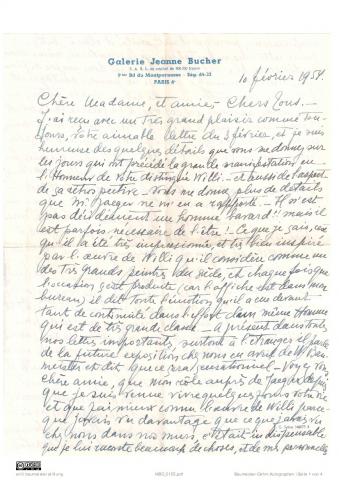 Galerie Jeanne Bucher
S. A. R. L. au capital de
9 ter Bd du Montparnasse - Ség. 64-32
PARIS 6e
10 février 1958.
Chère Madame, et amies Chers Tous. -
J'ai reçu avec un très grand plaisir comme tou-
jours, votre aimable lettre du 3 février, et je suis
heureuse des quelques détails que vous me donnez sur
les jours qui ont précédé la grande manifestation en
l'Honneur de votre Willi - et aussi de l'aspect
de sa rétrospective - Vous me donnez plus de détails
que Mr Jaeger ne m'en a rapporté - Il n'est
pas décidément un homme bavard!! mais il
est parfois nécessaire de l'être! - Ce que je sais, c'est
qu'il a été très impressionné, et très bien inspiré
par l'œuvre de Willi qu'il considère comme un
des très grands peintres du siècle, et chaque fois que
l'occasion peut se produire (car l'affiche est dans mon
bureau) il dit toute l'émotion qu'il a eu devant
tant de continuité dans l'effort d'un même Homme
qui est de très grande classe. - A présent dans toutes
nos lettres importantes, surtout à l'étranger il parle
de la future exposition chez nous en avril de W. Bau-
meister et dit que ce sera sensationnel - Voyez vous
Chère amie, que mon rôle auprès de Jaeger depuis
que je suis venue vivre quelques jours chez vous
et que j'ai mieux connu l'œuvre de Willi parce
que j'avais vu davantage que ce que j'avais vu
chez nous dans nos murs, c'était indispensable
que je lui raconte beaucoup de choses, et de mes personnelles
archiv baumeister at III.org
Baumeister-Grohn Autographen | Seite 1 von 4